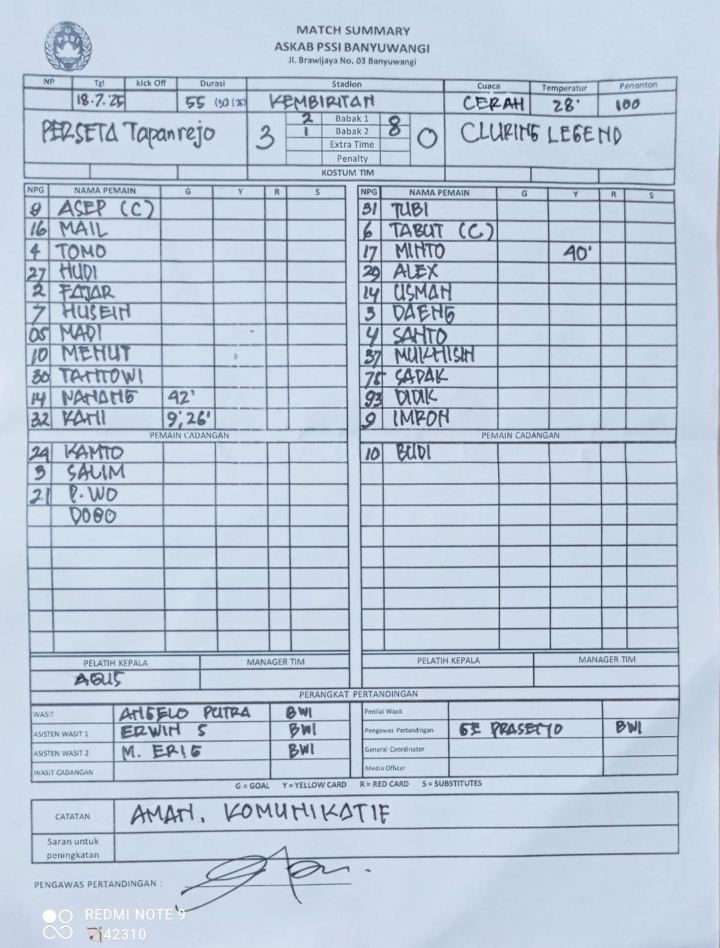 MATCH SUMMARY
ASKAB PSSI BANYUWANGI
Jl. Brawijaya No. 03 Banyuwangi
NP Tgl kick Off Durasi Stadion Cuaca Temperatur Penonton
18.7.25 55 (30 (25) KEMBIRITAN CERAH 28° 100
PERSETA Tapanrejo 3 2 Babak 1 0 0 CLURING LEGEND
1 Babak 2 0
Extra Time
Penalty
KOSTUM TIM
NPG NAMA PEMAIN G Y R S NPG NAMA PEMAIN G Y R S
9 ASEP (C) 31 TUBI
16 MAIL 6 TABUT (C)
4 TOMO 17 MINTO 40'
27 HUDI 29 ALEX
2 FAJAR 14 USMAN
7 HUSEIN 3 DAENG
05 MADI 4 SANTO
10 MENUT 37 MUKHISIN
30 TANTOWI 75 SAPAK
14 NANANG 42' 93 DIDIK
32 KANI 9', 26' 9 IMRON
PEMAIN CADANGAN PEMAIN CADANGAN
24 KAMTO 10 BUDI
3 SALIM
21 P. WO
DOBO
PELATIH KEPALA MANAGER TIM PELATIH KEPALA MANAGER TIM
AGUS
PERANGKAT PERTANDINGAN
WASIT ANGELO PUTRA BWI
ASISTEN WASIT 1 ERWIN S BWI Pengawas Pertandingan GE PRASETYO BWI
ASISTEN WASIT 2 M. ERIG BWI General Coordinator
WASIT CADANGAN Media Officer
G = GOAL Y = YELLOW CARD R = RED CARD S = SUBSTITUTES
CATATAN AMAN, KOMUNIKATIF
Saran untuk
peningkatan
PENGAWAS PERTANDINGAN :
REDMI NOTE 9
42310